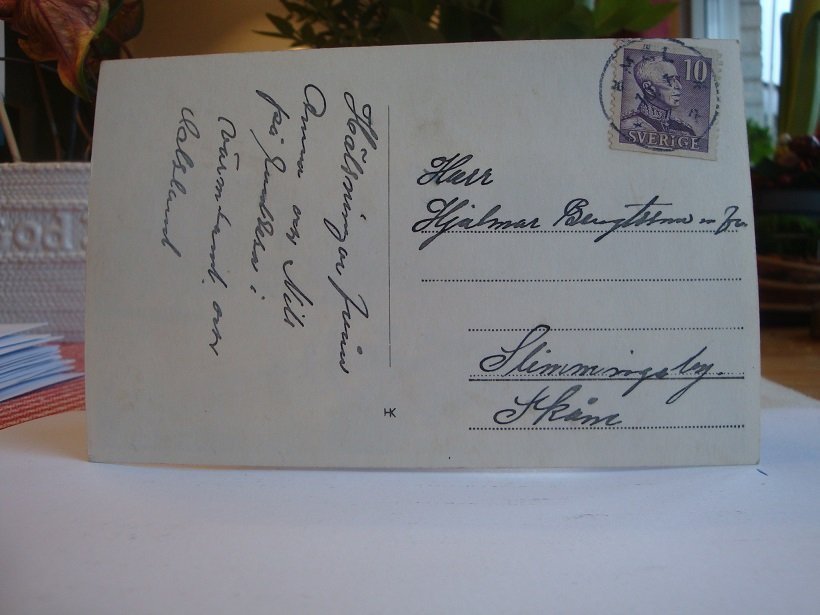 Hälsningar från
Anna och Nils
på Jullbesö i
Värmland och
Dalsland
Herr
Hjalmar Bengtsson m fru
Stimmingeby.
Skåne
10
SVERIGE
God